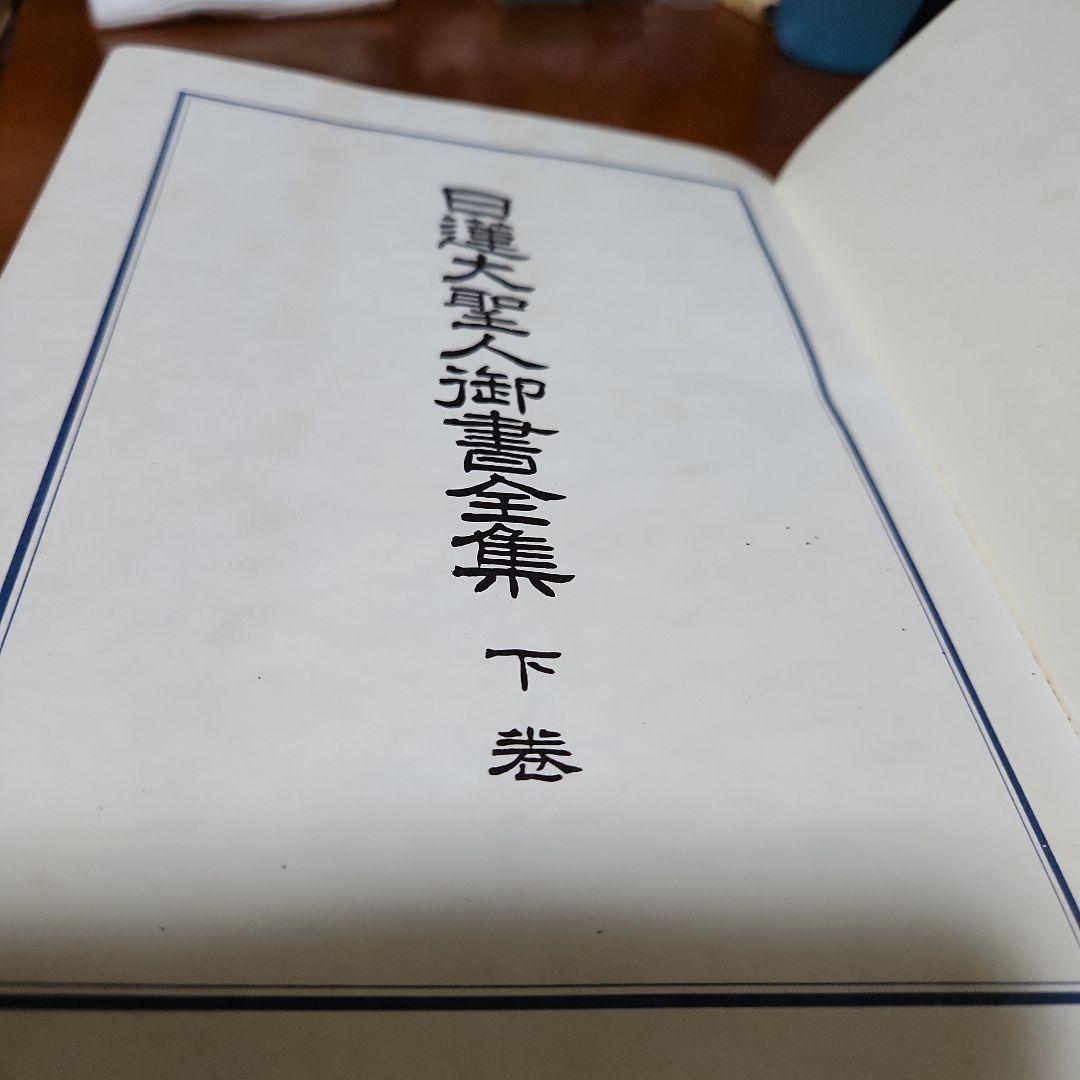 日蓮大聖人御書全集 下巻